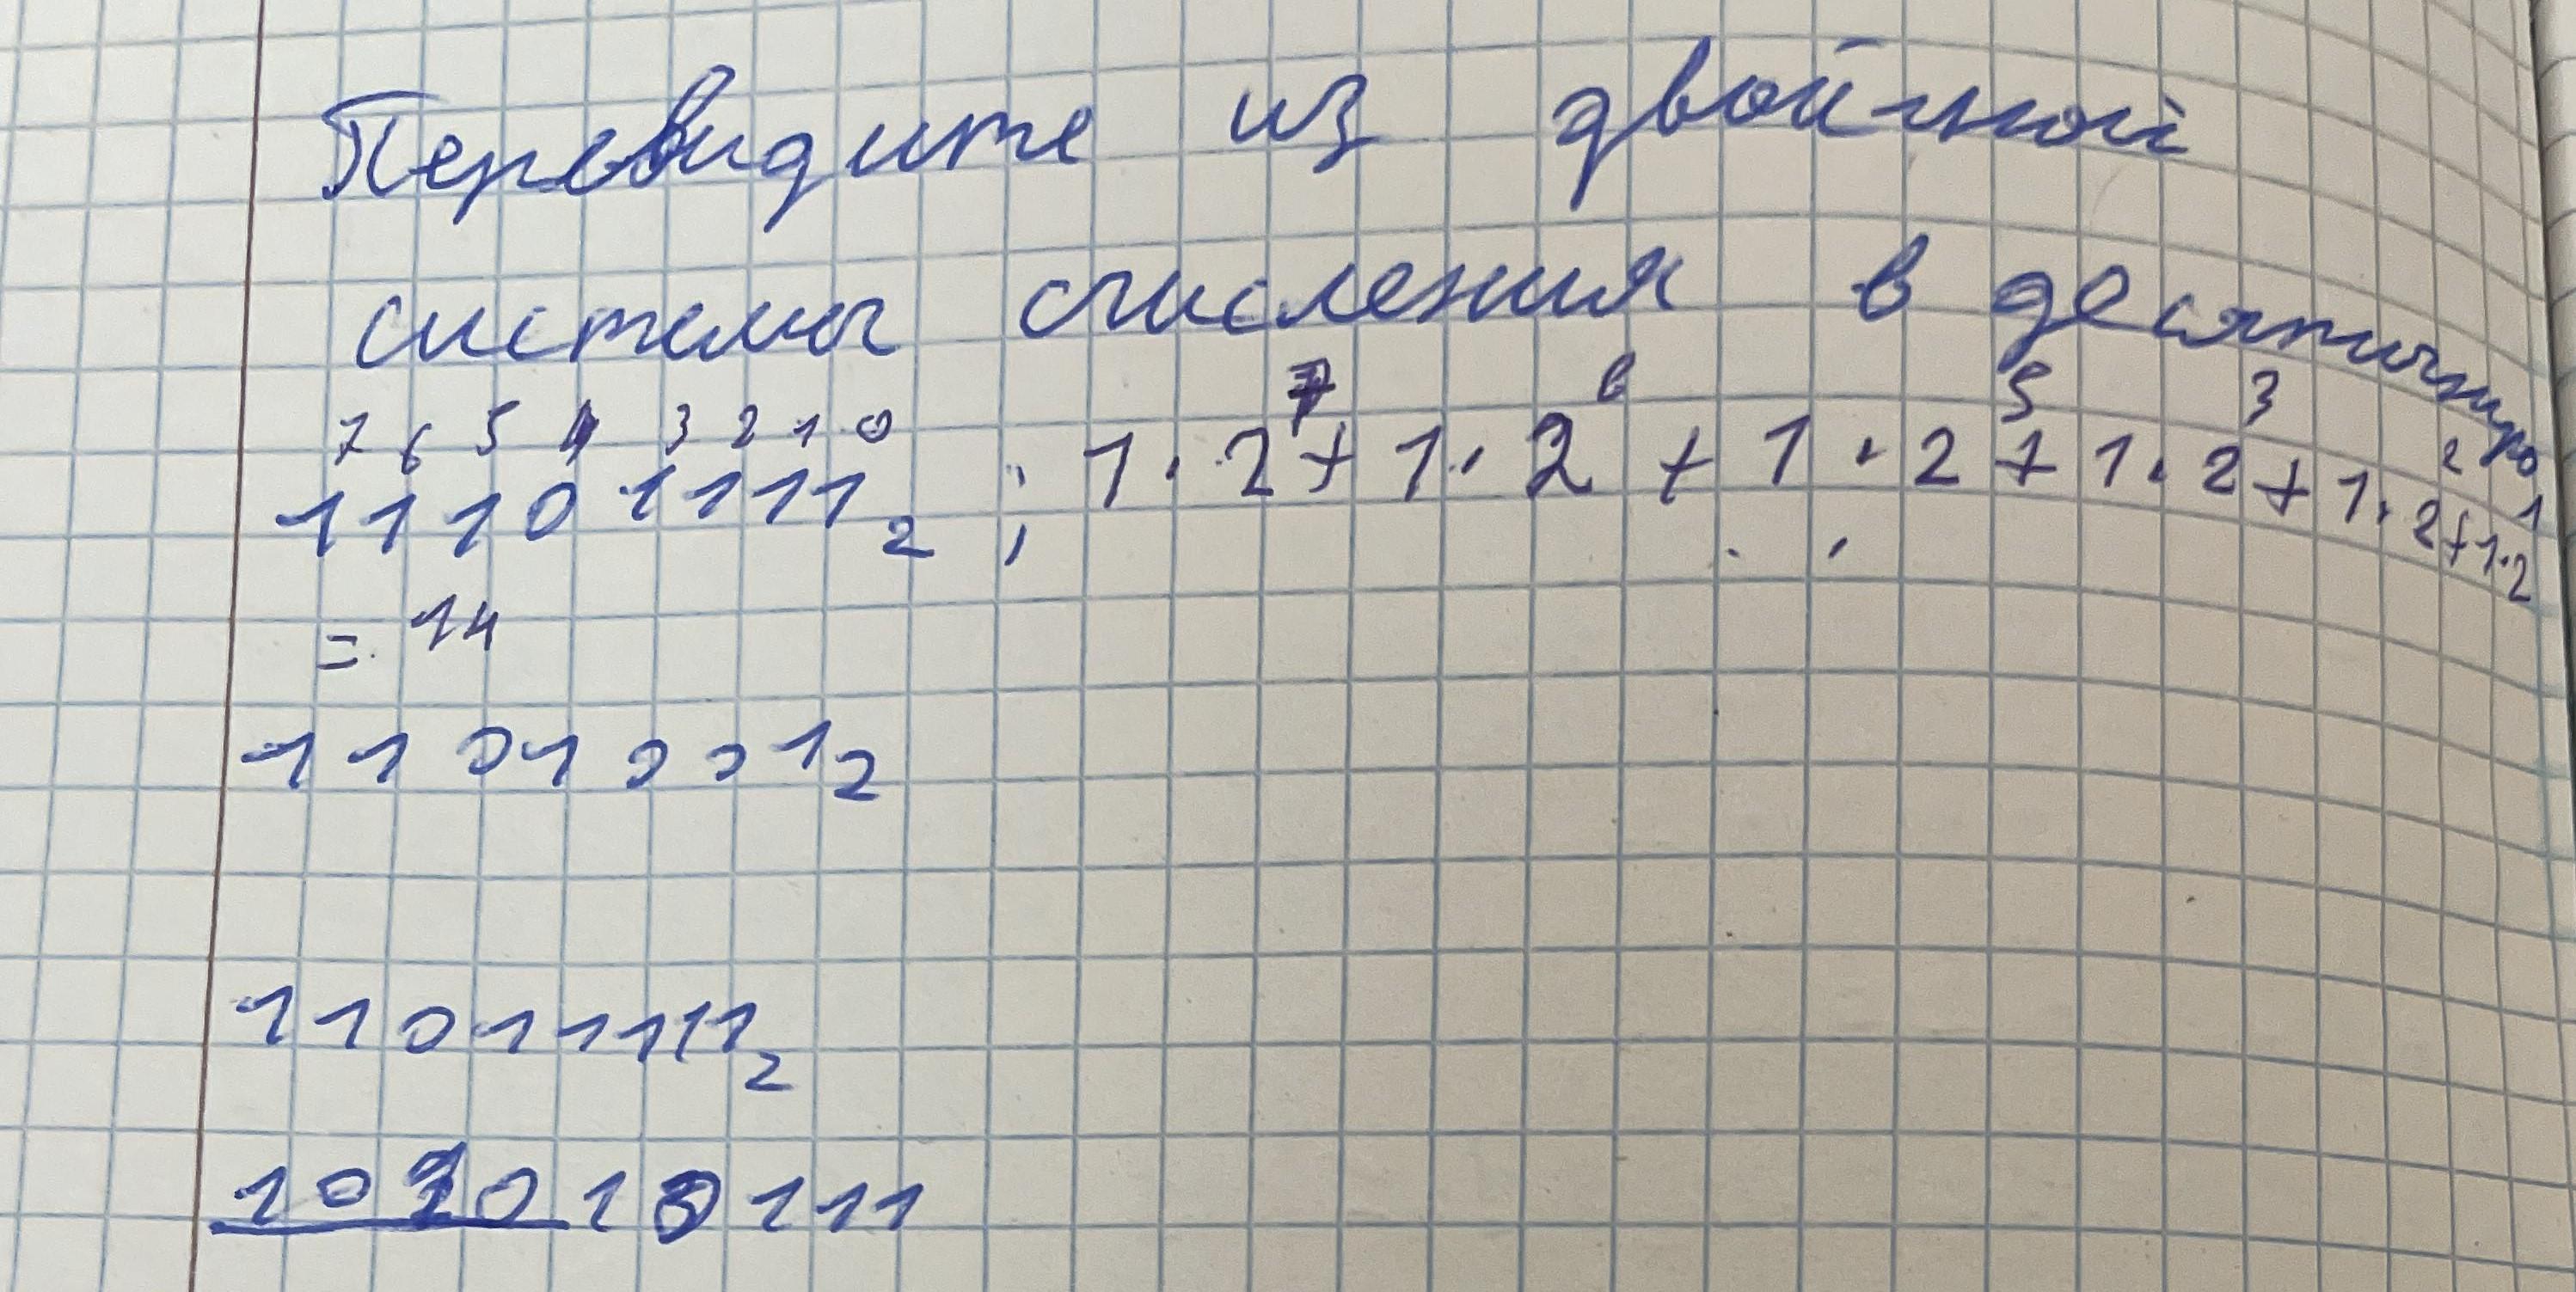 Перевидите из двойчной
системы счисления в десятичную
7 6 5 4 3 2 1 0
11101111₂ ; 1·2⁷ + 1·2⁶ + 1·2⁵ + 1·2³ + 1·2² + 1·2¹
= 14
1101001₂
11011111₂
101010111